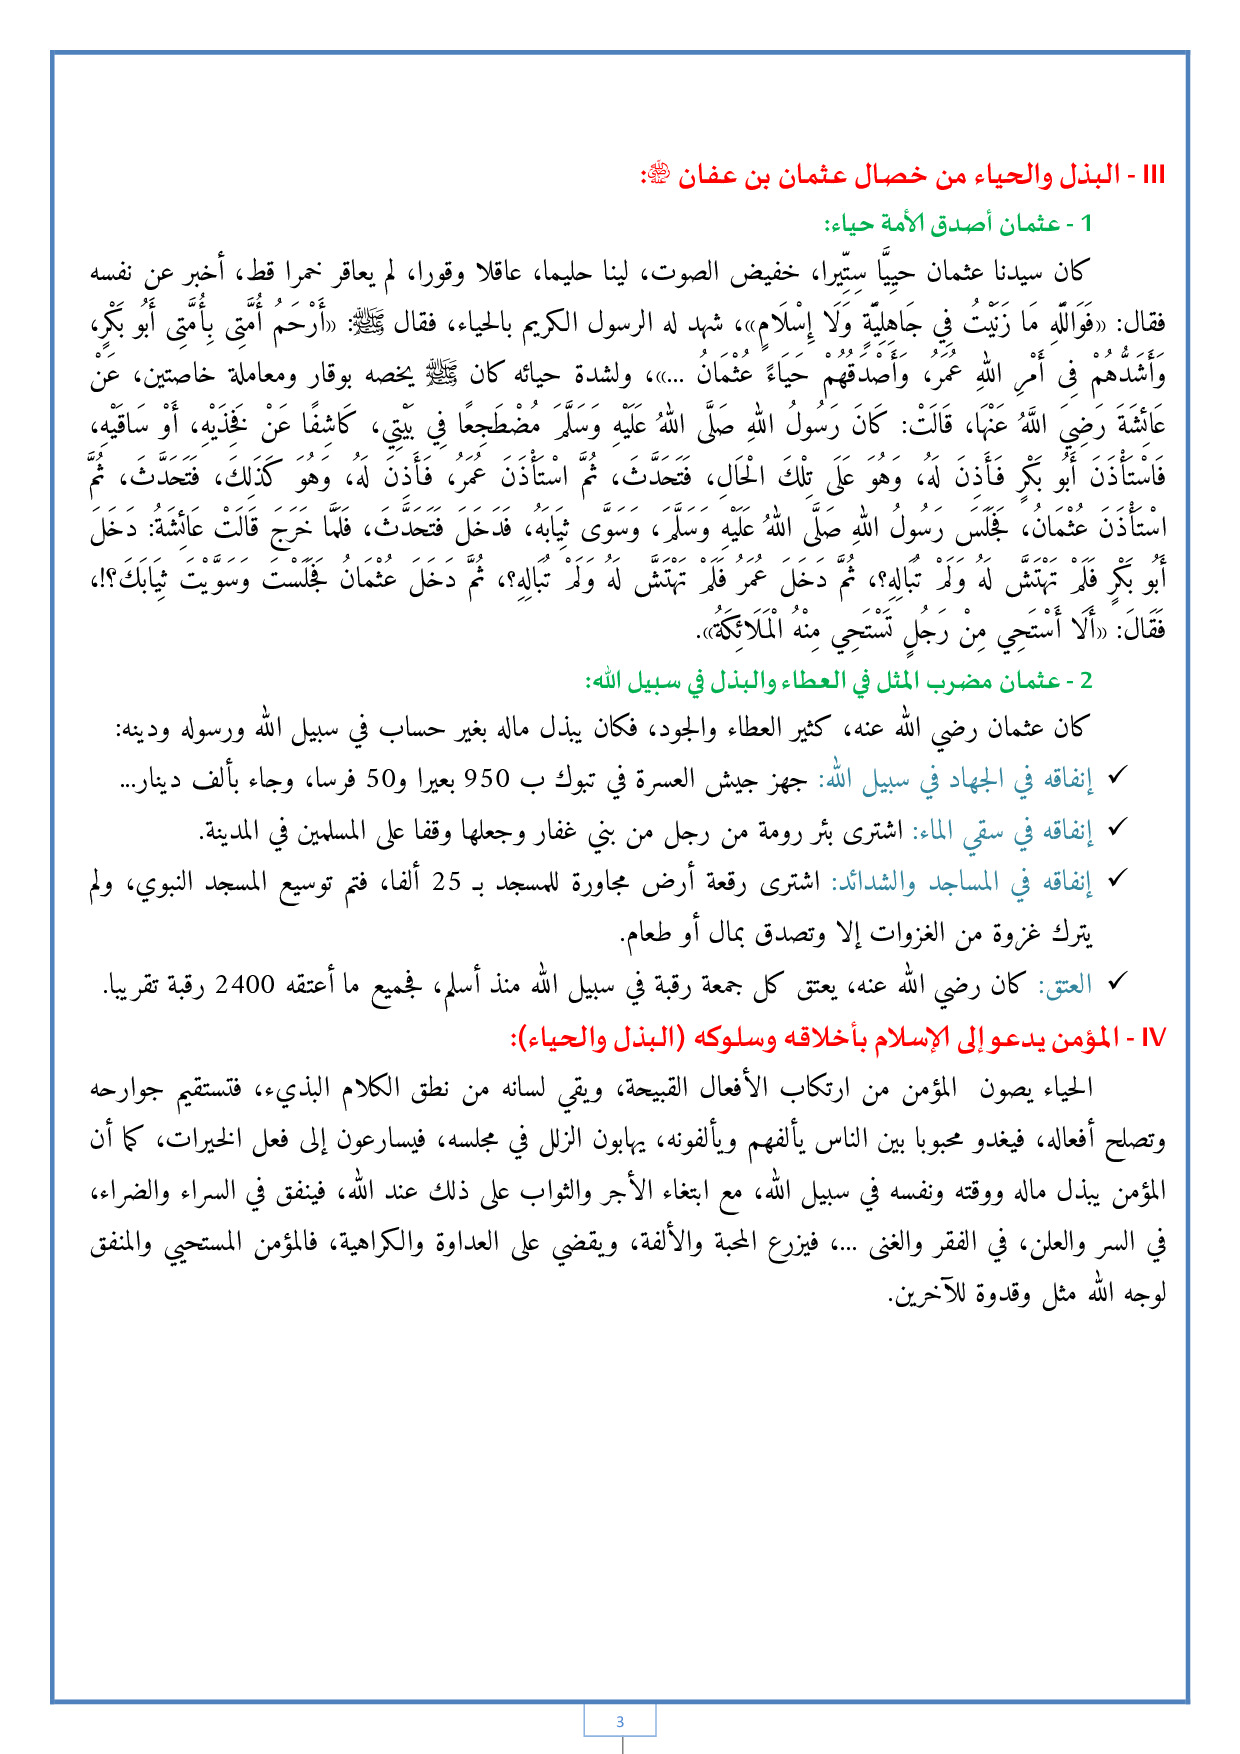 III - البذل والحياء من خصال عثمان بن عفان ﵁:
1 - عثمان أصدق الأمة حياء:
كان سيدنا عثمان حيِيًّا سِتِّيرا، خفيض الصوت، لينا حليما، عاقلا وقورا، لم يعاقر خمرا قط، أخبر عن نفسه
فقال: «فَوَاللَّهِ مَا زَنَيْتُ فِي جَاهِلِيَّةٍ وَلَا إِسْلَامٍ»، شهد له الرسول الكريم بالحياء، فقال ﷺ: «أَرْحَمُ أُمَّتِى بِأُمَّتِى أَبُو بَكْرٍ،
وَأَشَدُّهُمْ فِى أَمْرِ اللهِ عُمَرُ، وَأَصْدَقُهُمْ حَيَاءً عُثْمَانُ ...»، ولشدة حيائه كان ﷺ يخصه بوقار ومعاملة خاصتين، عَنْ
عَائِشَةَ رَضِيَ اللَّهُ عَنْهَا، قَالَتْ: كَانَ رَسُولُ اللهِ صَلَّى اللهُ عَلَيْهِ وَسَلَّمَ مُضْطَجِعًا فِي بَيْتِي، كَاشِفًا عَنْ فَخِذَيْهِ، أَوْ سَاقَيْهِ،
فَاسْتَأْذَنَ أَبُو بَكْرٍ فَأَذِنَ لَهُ، وَهُوَ عَلَى تِلْكَ الْحَالِ، فَتَحَدَّثَ، ثُمَّ اسْتَأْذَنَ عُمَرُ، فَأَذِنَ لَهُ، وَهُوَ كَذَلِكَ، فَتَحَدَّثَ، ثُمَّ
اسْتَأْذَنَ عُثْمَانُ، فَجَلَسَ رَسُولُ اللهِ صَلَّى اللهُ عَلَيْهِ وَسَلَّمَ، وَسَوَّى ثِيَابَهُ، فَدَخَلَ فَتَحَدَّثَ، فَلَمَّا خَرَجَ قَالَتْ عَائِشَةُ: دَخَلَ
أَبُو بَكْرٍ فَلَمْ تَهْتَشَّ لَهُ وَلَمْ تُبَالِهِ؟، ثُمَّ دَخَلَ عُمَرُ فَلَمْ تَهْتَشَّ لَهُ وَلَمْ تُبَالِهِ؟، ثُمَّ دَخَلَ عُثْمَانُ فَجَلَسْتَ وَسَوَّيْتَ ثِيَابَكَ؟!،
فَقَالَ: «أَلَا أَسْتَحِي مِنْ رَجُلٍ تَسْتَحِي مِنْهُ الْمَلَائِكَةُ».
2 - عثمان مضرب المثل في العطاء والبذل في سبيل الله:
كان عثمان رضي الله عنه، كثير العطاء والجود، فكان يبذل ماله بغير حساب في سبيل الله ورسوله ودينه:
✓ إنفاقه في الجهاد في سبيل الله: جهز جيش العسرة في تبوك ب 950 بعيرا و50 فرسا، وجاء بألف دينار...
✓ إنفاقه في سقي الماء: اشترى بئر رومة من رجل من بني غفار وجعلها وقفا على المسلمين في المدينة.
✓ إنفاقه في المساجد والشدائد: اشترى رقعة أرض مجاورة للمسجد بـ 25 ألفا، فتم توسيع المسجد النبوي، ولم
يترك غزوة من الغزوات إلا وتصدق بمال أو طعام.
✓ العتق: كان رضي الله عنه، يعتق كل جمعة رقبة في سبيل الله منذ أسلم، فجميع ما أعتقه 2400 رقبة تقريبا.
IV - المؤمن يدعو إلى الإسلام بأخلاقه وسلوكه (البذل والحياء):
الحياء يصون المؤمن من ارتكاب الأفعال القبيحة، ويقي لسانه من نطق الكلام البذيء، فتستقيم جوارحه
وتصلح أفعاله، فيغدو محبوبا بين الناس يألفهم ويألفونه، يهابون الزلل في مجلسه، فيسارعون إلى فعل الخيرات، كما أن
المؤمن يبذل ماله ووقته ونفسه في سبيل الله، مع ابتغاء الأجر والثواب على ذلك عند الله، فينفق في السراء والضراء،
في السر والعلن، في الفقر والغنى ...، فيزرع المحبة والألفة، ويقضي على العداوة والكراهية، فالمؤمن المستحيي والمنفق
لوجه الله مثل وقدوة للآخرين.
3